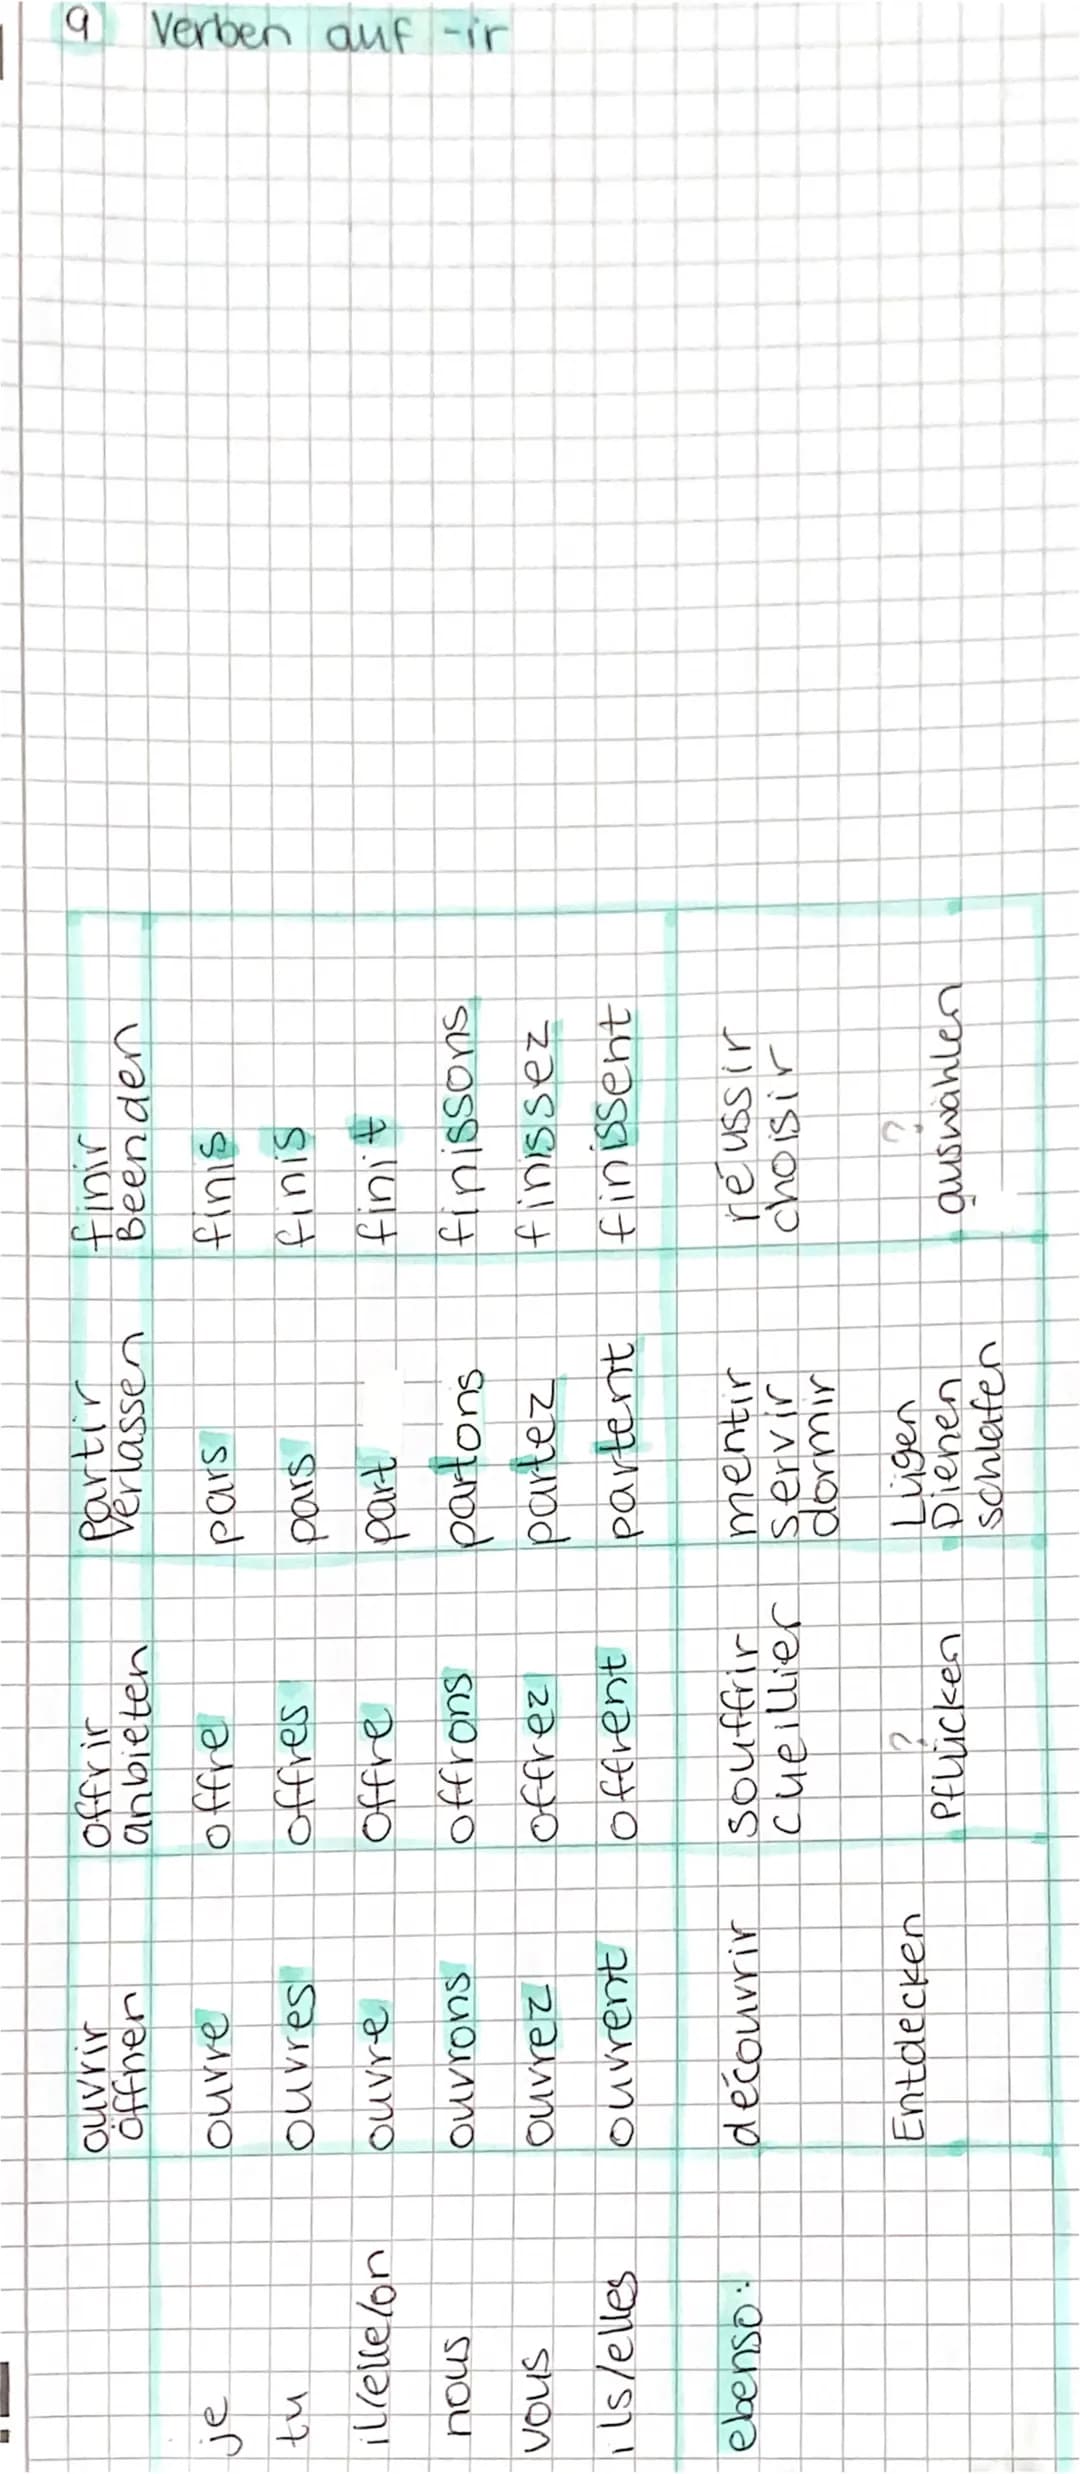 9 Verben auf -ir
ouvrir offrir Partir finir
öffnen anbieten Verlassen Beenden
je ouvre offre pars finis
tu ouvres offres pars finis
il/elle/on ouvre offre part finit
nous ouvrons offrons partons finissons
vous ouvrez offrez partez finissez
ils/elles ouvrent offrent partent finissent
ebenso: découvrir souffrir mentir réussir
cueillier servir choisir
dormir
Entdecken ? Lügen ?
Pflücken Dienen auswählen
schlafen